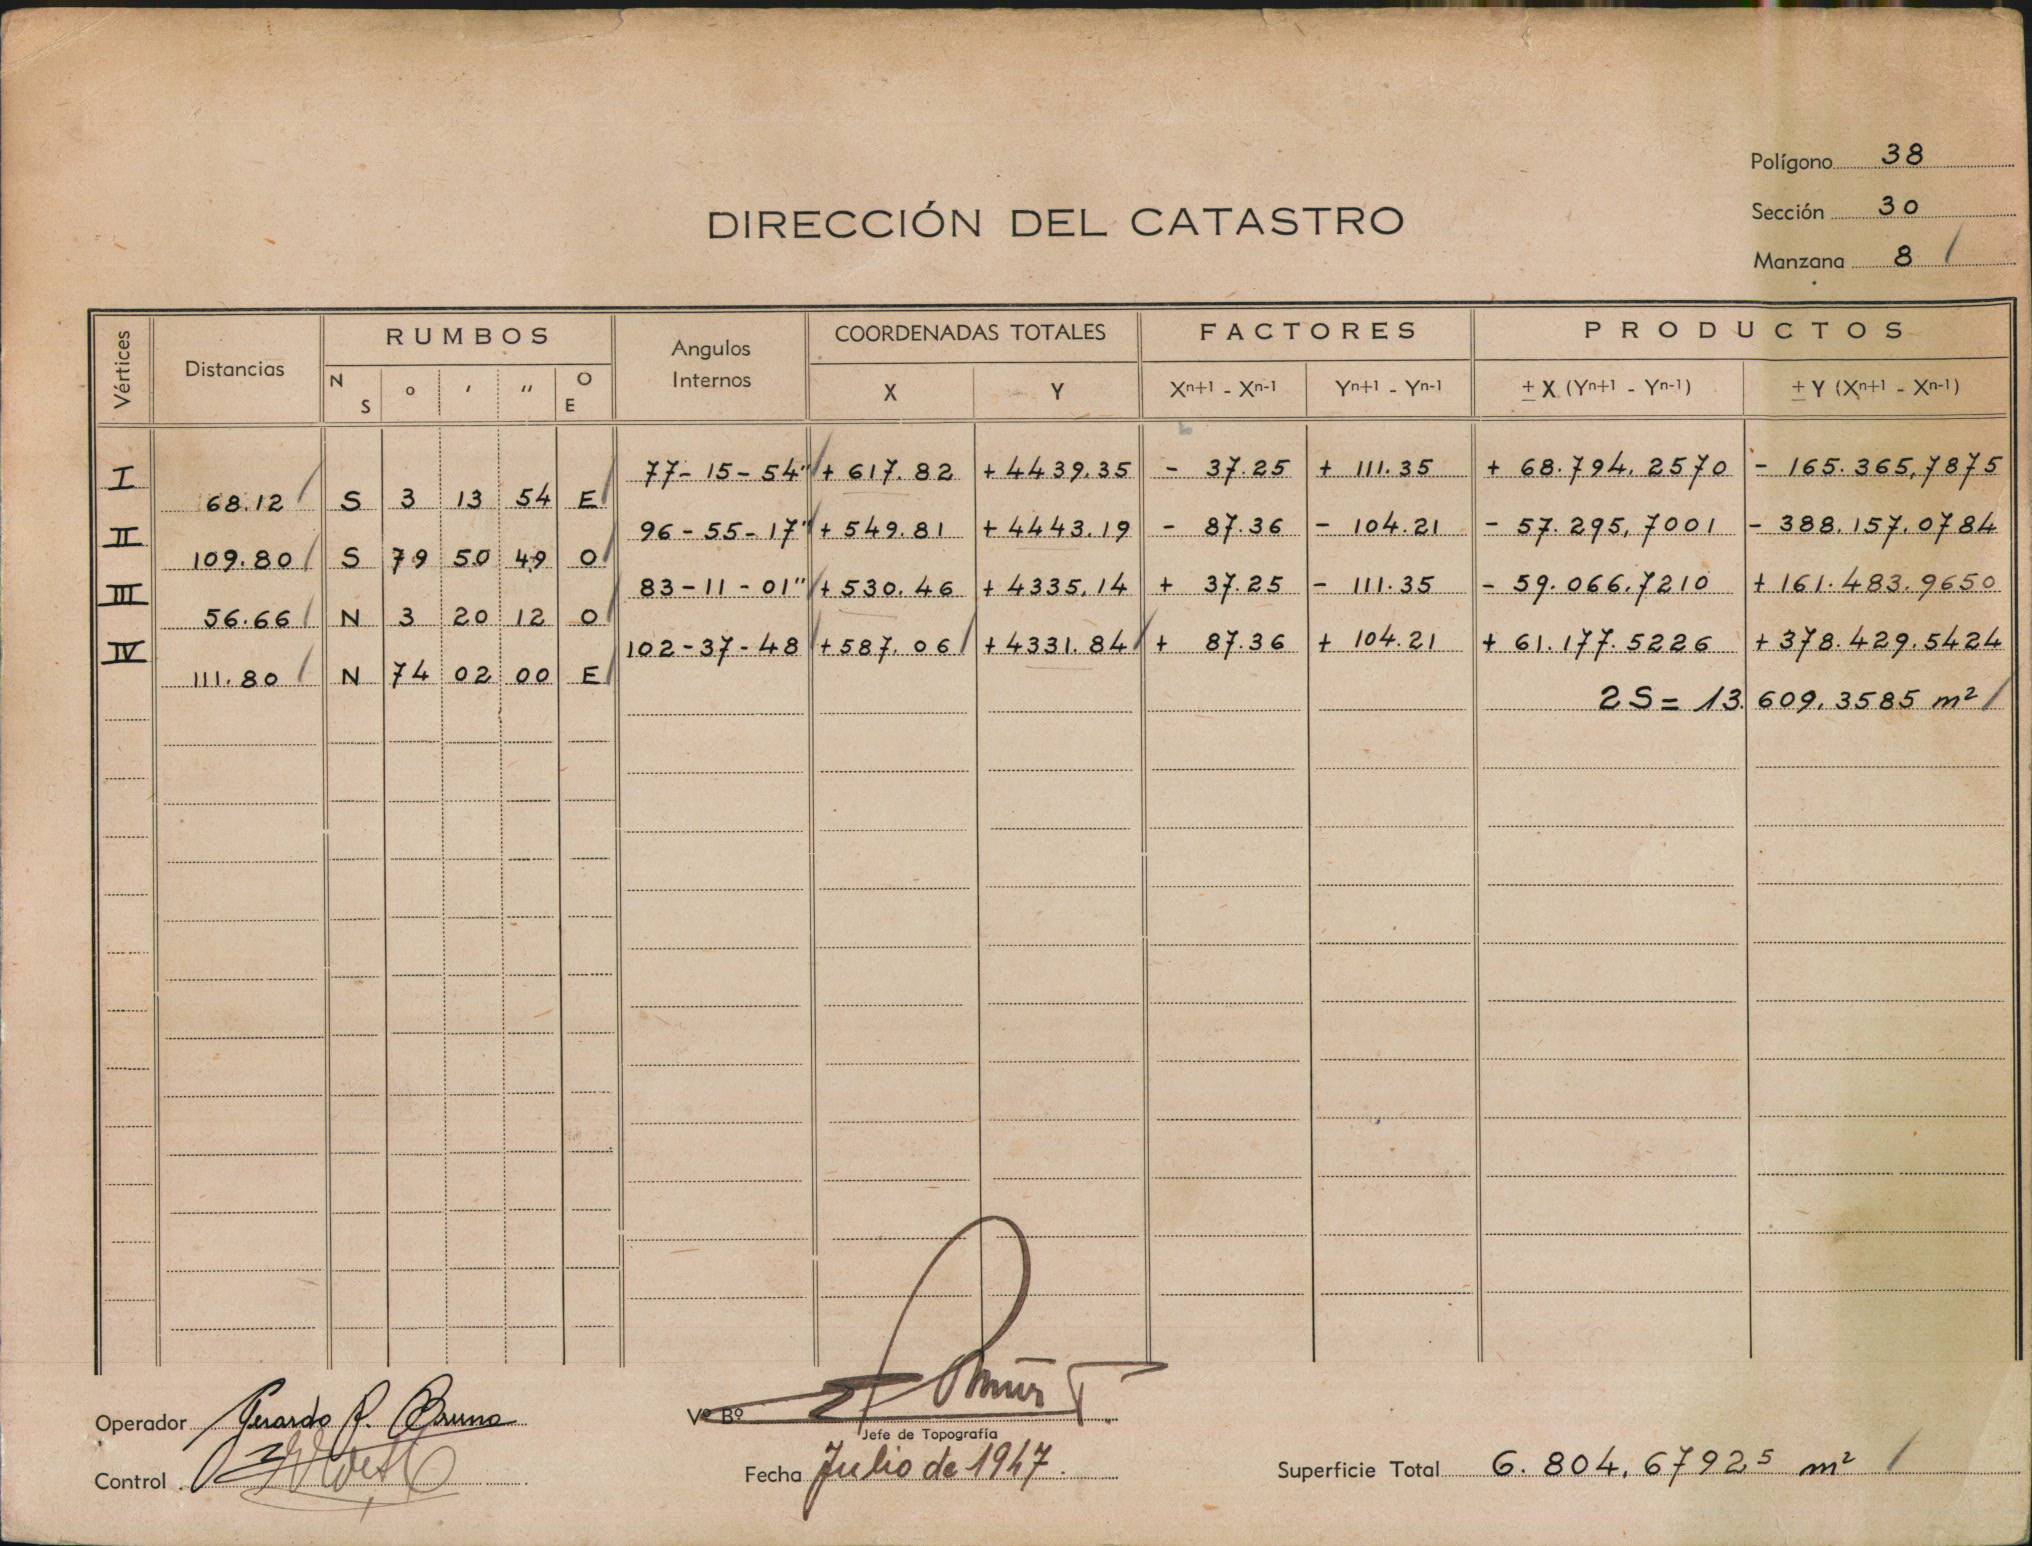 Polígono 38
DIRECCIÓN DEL CATASTRO
Sección 30
Manzana 8
Vértices Distancias RUMBOS Angulos Internos COORDENADAS TOTALES FACTORES PRODUCTOS
N S ° ′ ″ O E X Y Xn+1 - Xn-1 Yn+1 - Yn-1 ± X (Yn+1 - Yn-1) ± Y (Xn+1 - Xn-1)
I 77-15-54" + 617.82 + 4439.35 - 37.25 + 111.35 + 68.794.2570 - 165.365,7875
68.12 S 3 13 54 E
II 96-55-17" + 549.81 + 4443.19 - 87.36 - 104.21 - 57.295,7001 - 388.157.0784
109.80 S 79 50 49 O
III 83-11-01" + 530.46 + 4335.14 + 37.25 - 111.35 - 59.066.7210 + 161.483.9650
56.66 N 3 20 12 O
IV 102-37-48 + 587.06 + 4331.84 + 87.36 + 104.21 + 61.177.5226 + 378.429.5424
111.80 N 74 02 00 E
2S = 13.609.3585 m²
Operador Gerardo R. Bruno
Vº Bº
Jefe de Topografía
Control
Fecha Julio de 1947.
Superficie Total 6.804.67925 m²